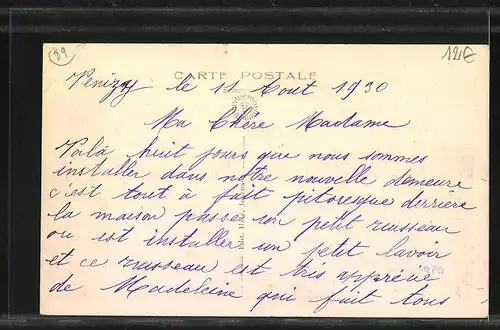 89
12€
CARTE POSTALE
Venizy le 11 Aout 1930
Ma Chére Madame
Voilà huit jours que nous sommes
installer dans nôtre nouvelle demeure
c'est tout à fait pitoresque derrière
la maison passe un petit ruisseau
ou est installer un petit lavoir
et ce ruisseau est trés appréçié
de Madeleine qui fait tous